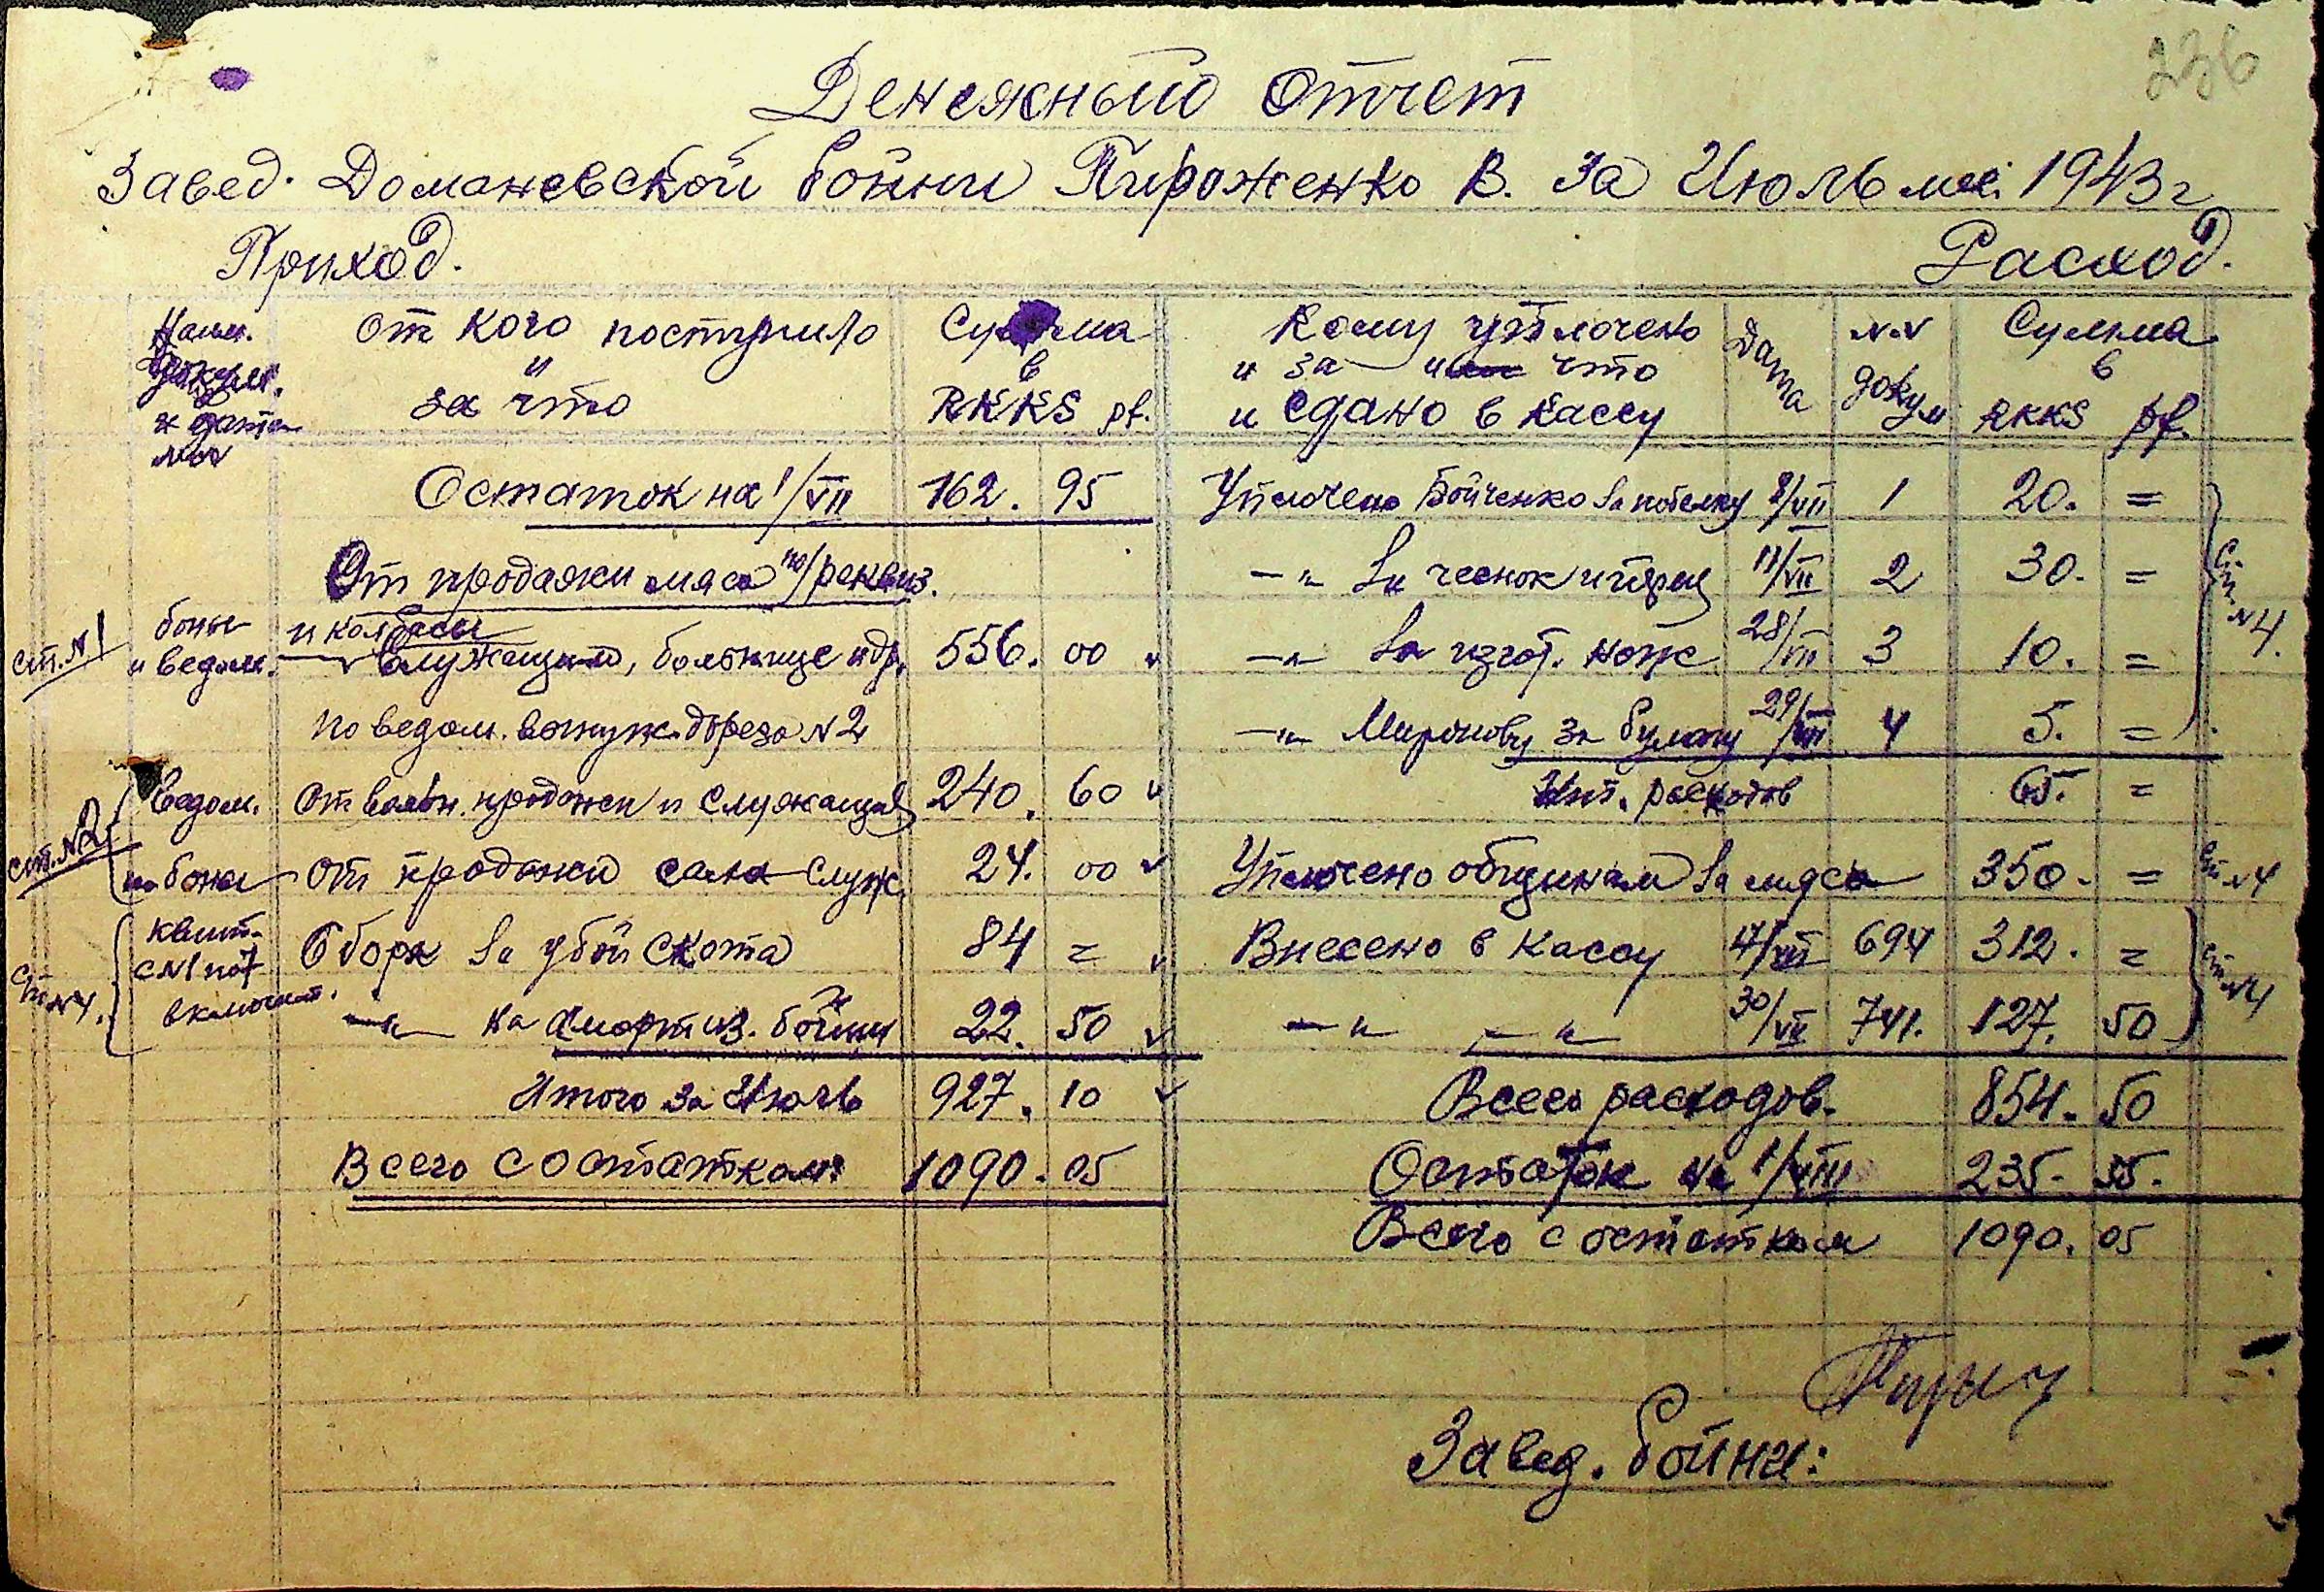 236
Денежный отчет
Завед. Доманевской бойни Пироженко В. за Июль м-ц 1943 г
Приход. Расход.
Наим. докум. и дата №№ От кого поступило и за что Сумма в RKKS pf. Кому уплочено и за что и сдано в кассу Дата №№ докум Сумма в RKKS pf.
Остаток на 1/VII 162. 95 Уплочено Бойченко за побелку 2/VII 1 20. =
От продажи мяса по/реквиз. -"- за чеснок и перец 11/VII 2 30. =
и колбасы
ст. №1 боны и ведом. служащим, больнице и др. 556. 00 -"- за изгот. нож 28/VII 3 10. =
ст. №4.
по ведом. вынужд. дореза №2 -"- Миронову за бумагу 29/VII 4 5. =
ст. №2 Ведом. от вольн. продажи и служащих 240. 60 Ит. расходов 65. =
боны от продажи сала служ. 24. 00 Уплочено общинам за мясо 350. = ст №4
ст №4. квит. с №1 по включит. Сбора за убой скота 84 = Внесено в кассу 17/VII 694 312. =
-"- на амортиз. бойни 22. 50 -"- -"- 30/VII 741. 127. 50 ст. №4
Итого за Июль 927. 10 Всего расходов. 854. 50
Всего с остатком 1090. 05 Остаток на 1/VIII 235. 55.
Всего с остатком 1090. 05
Завед. бойни: